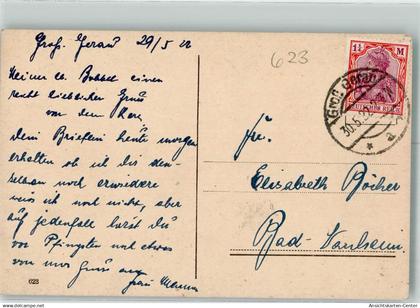 Groß. Gerau 29/5 22
Meiner lb. Babbel einen
recht lieblichen Gruß
von dem
Dein Brieflein heute morgen
erhalten ob ich dir den-
selben noch erwidere
weis ich noch nicht, aber
auf jedenfall hörst du
vor Pfingsten noch etwas
von mir Gruß
623
623
1¼ M
DEUTSCHES REICH
Groß Gerau
30.5.22
Frl.
Elisabeth Böcher
Bad-Nauheim
www.ansichtskarten-center.de
Ansichtskarten-Center